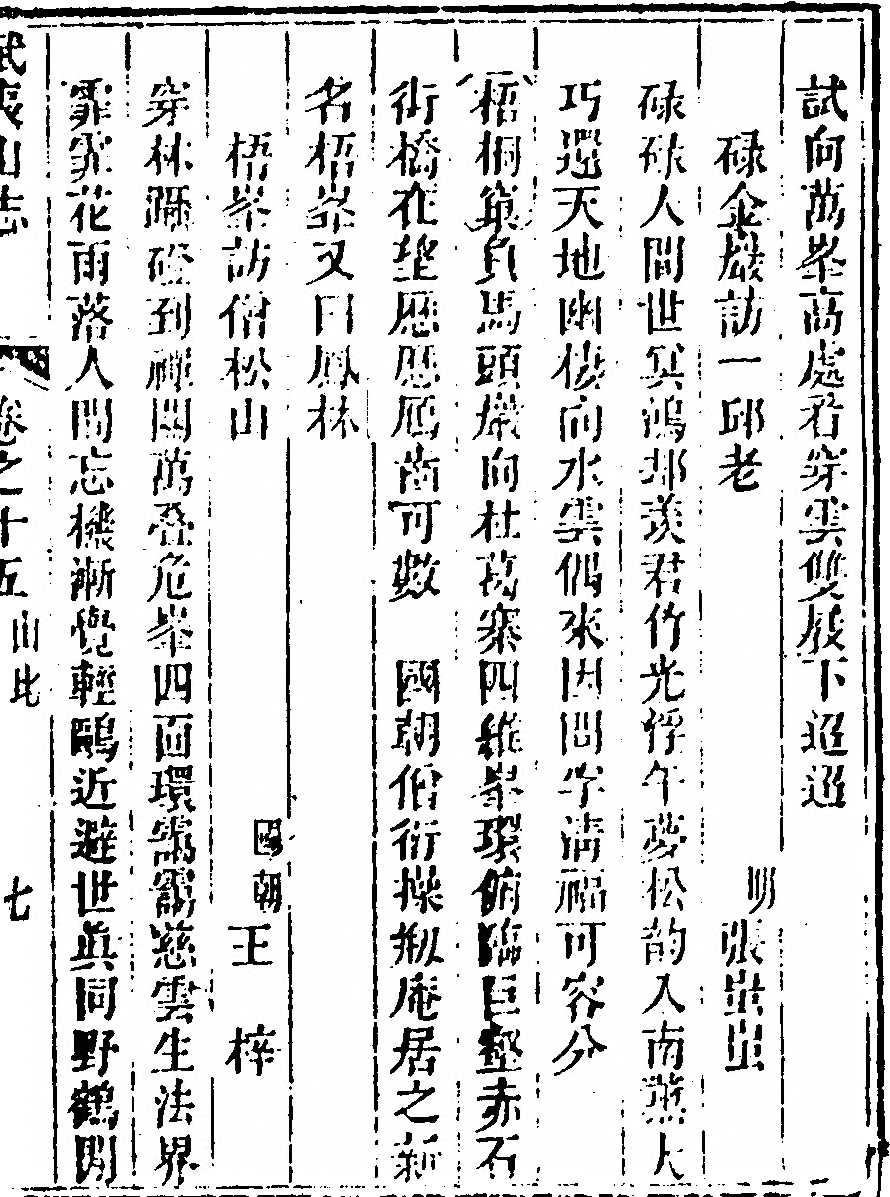 試向萬峯高處看穿雲雙屐下迢迢
碌金巖訪一邱老
明張蚩蚩
碌碌人間世冥鴻却羨君竹光俘午夢松韵入南薫大
巧還天地幽棲向水雲偶來因問字清福可容分
梧桐窠負馬頭巖向杜葛寨四維峯環俯臨巨壑赤石
街橋在望歷歷鴈齒可數 國朝僧衍操剏庵居之新
名梧峯又曰鳳林
梧峯訪僧松山
國朝王 梓
穿林躡磴到禪關萬叠危峯四面環靄靄慈雲生法界
霏霏花雨落人間忘機漸覺輕鷗近避世眞同野鶴閒
武夷山志 卷之十五 山北 七